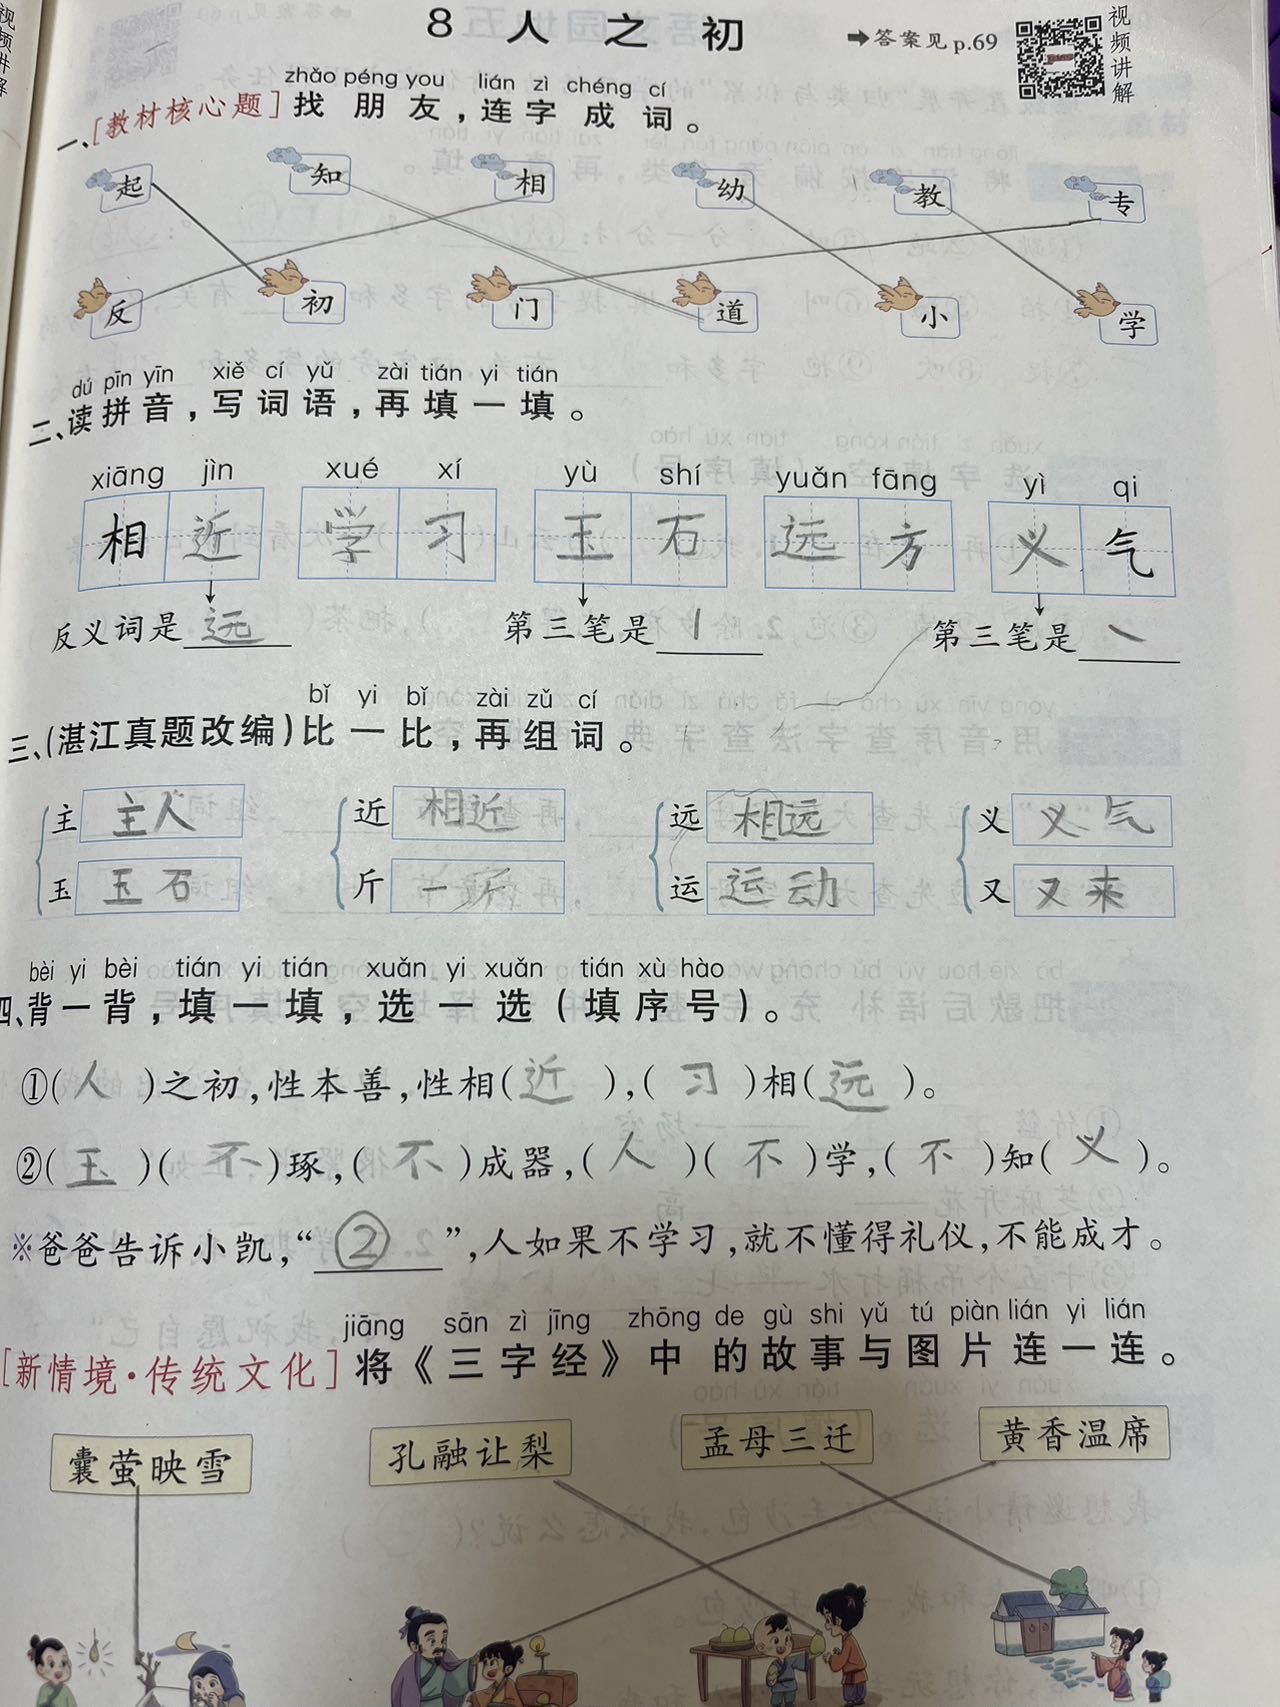 8 人之初
➡答案见p.69
视频讲解
zhǎo péng you lián zì chéng cí
一、[教材核心题]找朋友,连字成词。
起 知 相 幼 教 专
反 初 门 道 小 学
dú pīn yīn xiě cí yǔ zài tián yi tián
二、读拼音,写词语,再填一填。
xiāng jìn xué xí yù shí yuǎn fāng yì qi
相近 学习 玉石 远方 义气
反义词是远 第三笔是丨 第三笔是㇏
bǐ yi bǐ zài zǔ cí
三、(湛江真题改编)比一比,再组词。
主 主人 近 相近 远 相远 义 义气
玉 玉石 斤 一斤 运 运动 又 又来
bèi yi bèi tián yi tián xuǎn yi xuǎn tián xù hào
四、背一背,填一填,选一选(填序号)。
①(人)之初,性本善,性相(近),(习)相(远)。
②(玉)(不)琢,(不)成器,(人)(不)学,(不)知(义)。
※爸爸告诉小凯,“②”,人如果不学习,就不懂得礼仪,不能成才。
jiāng sān zì jīng zhōng de gù shi yǔ tú piàn lián yi lián
[新情境·传统文化]将《三字经》中的故事与图片连一连。
囊萤映雪 孔融让梨 孟母三迁 黄香温席